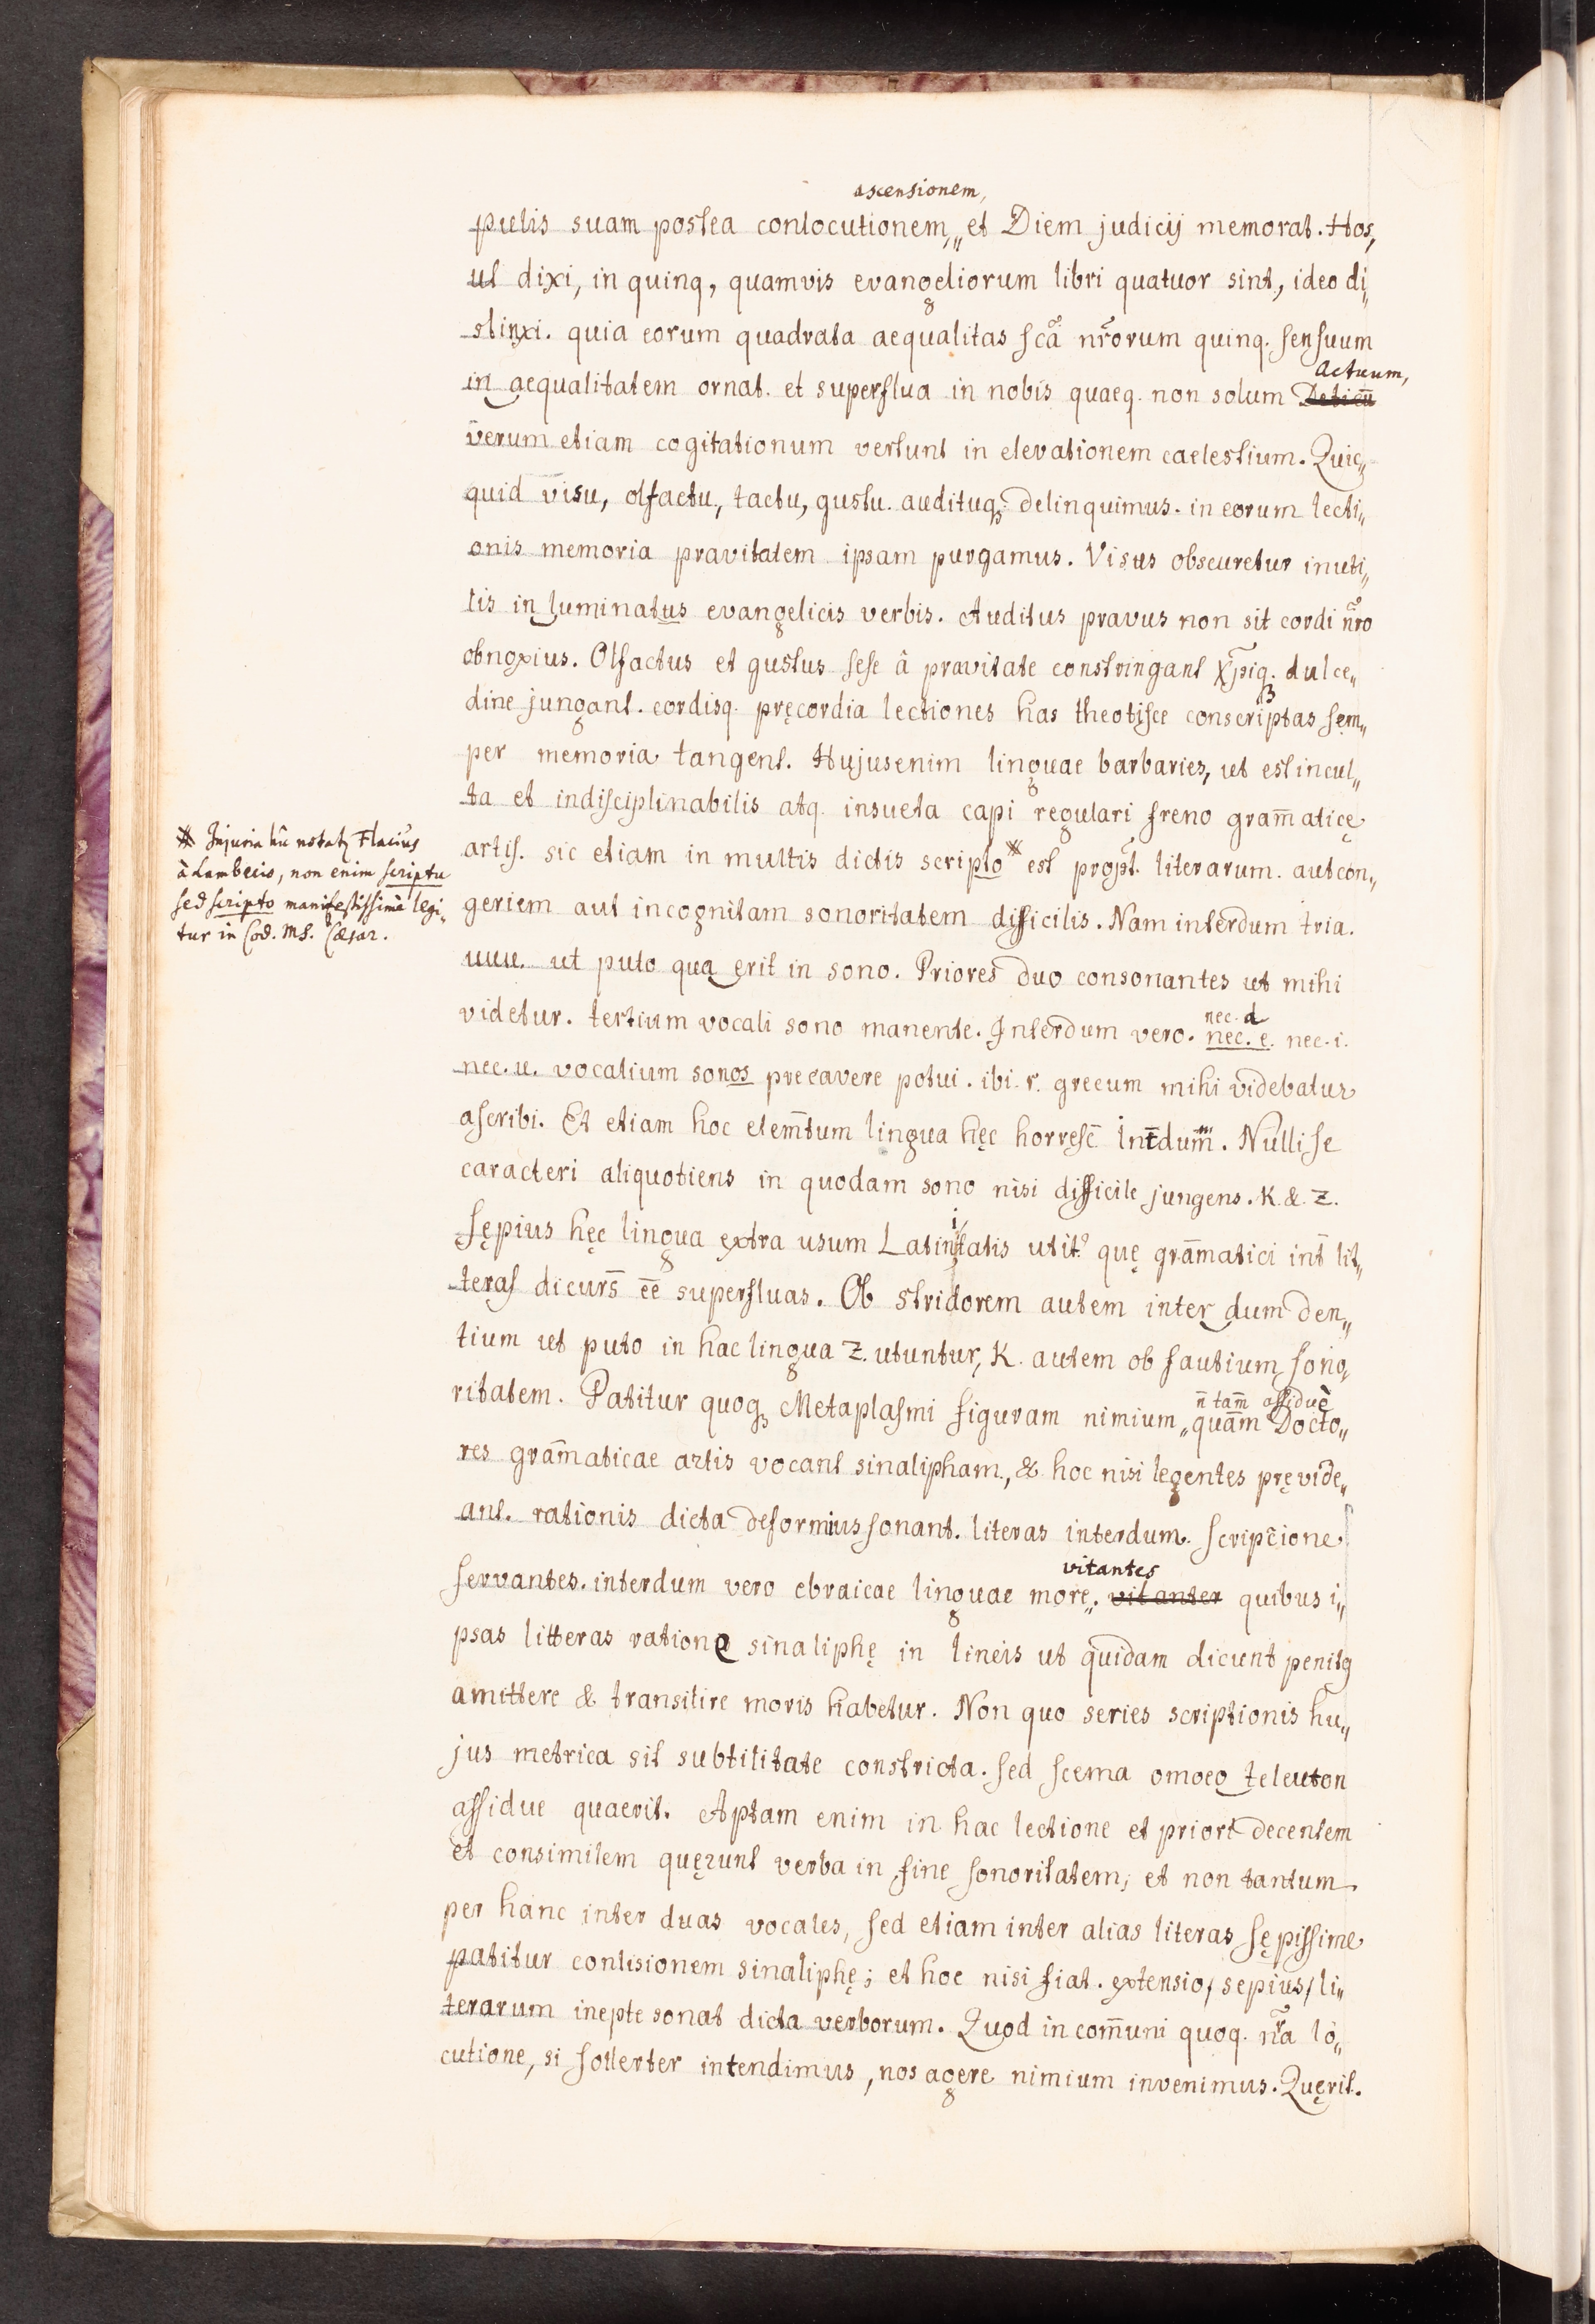 ascensionem,
pulis suam postea conlocutionem,„ et Diem judicij memorat. Hos,
ut dixi, in quinq, quamvis evangeliorum libri quatuor sint, ideo di„
stinxi. quia eorum quadrata aequalitas scā nr̄orum quinq. sensuum
Actuum,
in aequalitatem ornat. et superflua in nobis quaeq. non solum
verum etiam cogitationum vertunt in elevationem caelestium. Quic„
quid visu, olfactu, tactu, gustu. audituq; delinquimus. in eorum lecti„
onis memoria pravitatem ipsam purgamus. Visus obscuretur inuti„
lis in luminatus evangelicis verbis. Auditus pravus non sit cordi nr̄o
obnoxius. Olfactus et gustus sese â pravitate constringant Xp̄iq. dulce„
dine jungant. cordisq. pręcordia lectiones has theotisce conscriptas sem„
per memoria tangent. Hujusenim linguae barbaries, ut est incul„
ta et indisciplinabilis atq. insueta capi regulari freno gram̄aticę
artis. sic etiam in multis dictis scripto * est propt̄. literarum. aut con„
geriem aut incognitam sonoritatem difficilis. Nam interdum tria.
uuu. ut puto quą erit in sono. Priores duo consonantes ut mihi
nec. a
videtur. tertium vocali sono manente. Interdum vero. nec. e. nec. i.
nec. u. vocalium sonos precavere potui. ibi. r. grecum mihi videbatur
ascribi. Et etiam hoc elem̄tum lingua hęc horresc̄ Int̄dum̄. Nulli se
caracteri aliquotiens in quodam sono nisi difficile jungens. K. & Z.
Sępius hęc lingua extra usum Latinitatis utit.᾿ quę gram̄atici int̄ lit„
teras dicurs̄ ēē superfluas. Ob stridorem autem inter dum den„
tium ut puto in hac lingua Z. utuntur, K. autem ob fautium sono„
n̄ tam̄ assiduè
ritatem. Patitur quoq; Metaplasmi figuram nimium „quam̄ Docto„
res gram̄aticae artis vocant sinalipham, & hoc nisi legentes pręvide„
ant. rationis dicta deformius sonant. literas interdum. scripc̄ione
vitantes
servantes. interdum vero ebraicae linguae more„. vitanter quibus i„
psas litteras rationę sinaliphę in lineis ut quidam dicunt penitq
amittere & transilire moris habetur. Non quo series scriptionis hu„
jus metrica sit subtilitate constricta. sed scema omoeo teleuton
assidue quaerit. Aptam enim in hac lectione et priori decentem
et consimilem quęrunt verba in fine sonoritatem, et non tantum
per hanc inter duas vocales, sed etiam inter alias literas sępissime
patitur conlisionem sinaliphę; et hoc nisi fiat. extensio, sepius, li„
terarum inepte sonat dicta verborum. Quod in com̄uni quoq. nr̄a lo„
cutione, si sollerter intendimus, nos agere nimium invenimus. Quęrit.
* Injuria hîc notatʒ Flacius
à Lambecio, non enim scriptu
sed scripto manifestissimè legi„
tur in Cod. MS. Cæsar.